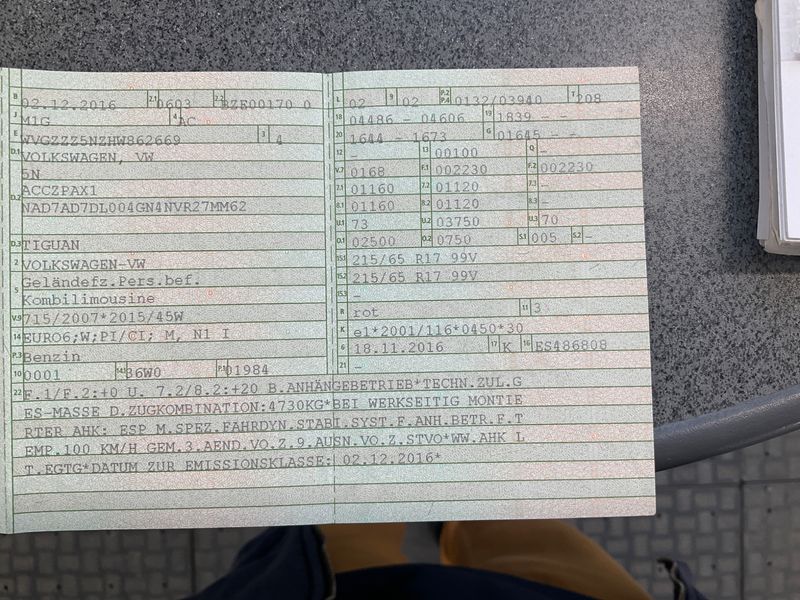 B 02.12.2016 2.1 0603 2.2 BZE00170 0
J M1G 4 AC
E WVGZZZ5NZHW862669 3 4
D.1 VOLKSWAGEN, VW
5N
D.2 ACCZPAX1
NAD7AD7DL004GN4NVR27MM62
D.3 TIGUAN
2 VOLKSWAGEN-VW
5 Geländefz.Pers.bef.
Kombilimousine
V.9 715/2007*2015/45W
14 EURO6;W;PI/CI; M, N1 I
P.3 Benzin
10 0001 14.1 36W0 P.1 01984
L 02 9 02 P.2 P.4 0132/03940 T 208
18 04486 - 04606 19 1839 - -
20 1644 - 1673 G 01645 - -
12 - 13 00100 Q -
V.7 0168 F.1 002230 F.2 002230
7.1 01160 7.2 01120 7.3 -
8.1 01160 8.2 01120 8.3 -
U.1 73 U.2 03750 U.3 70
O.1 02500 O.2 0750 S.1 005 S.2 -
15.1 215/65 R17 99V
15.2 215/65 R17 99V
15.3 -
R rot 11 3
K e1*2001/116*0450*30
6 18.11.2016 17 K 16 ES486808
21 -
22 F.1/F.2:+0 U. 7.2/8.2:+20 B.ANHÄNGEBETRIEB*TECHN.ZUL.G
ES-MASSE D.ZUGKOMBINATION:4730KG*BEI WERKSEITIG MONTIE
RTER AHK: ESP M.SPEZ.FAHRDYN.STABI.SYST.F.ANH.BETR.F.T
EMP.100 KM/H GEM.3.AEND.VO.Z.9.AUSN.VO.Z.STVO*WW.AHK L
T.EGTG*DATUM ZUR EMISSIONKLASSE: 02.12.2016*